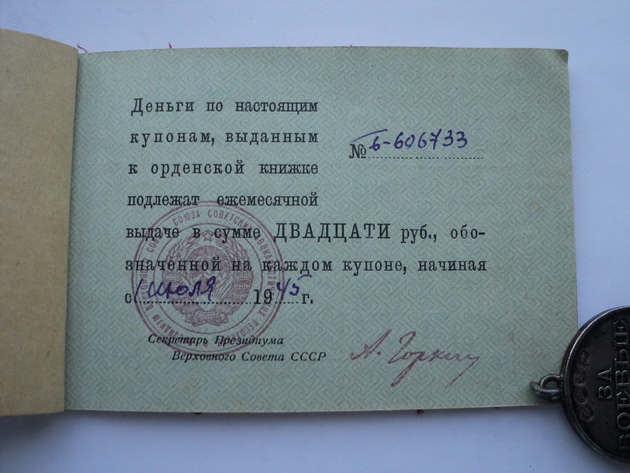 Деньги по настоящим
купонам, выданным
к орденской книжке
№ Б-606733
подлежат ежемесячной
выдаче в сумме ДВАДЦАТИ руб., обо-
значенной на каждом купоне, начиная
с 1 июля 1945 г.
Секретарь Президиума
Верховного Совета СССР
А. Горкин
СОЮЗА СОВЕТСКИХ
СССР
ЗА
БОЕВЫЕ